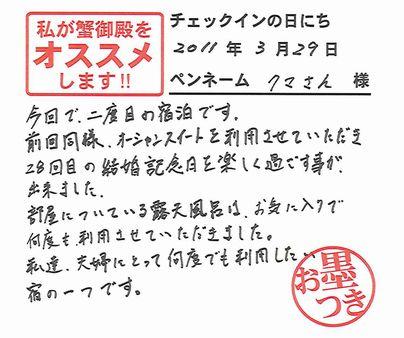 私が蟹御殿を
オススメ
します!!
チェックインの日にち
2011年3月29日
ペンネーム クマさん 様
今回で、二度目の宿泊です。
前回同様、オーシャンスイートを利用させていただき
28回目の結婚記念日を楽しく過ごす事が、
出来ました。
部屋についている露天風呂は、お気に入りで
何度も利用させていただきました。
私達、夫婦にとって何度でも利用したい
宿の一つです。
お墨つき